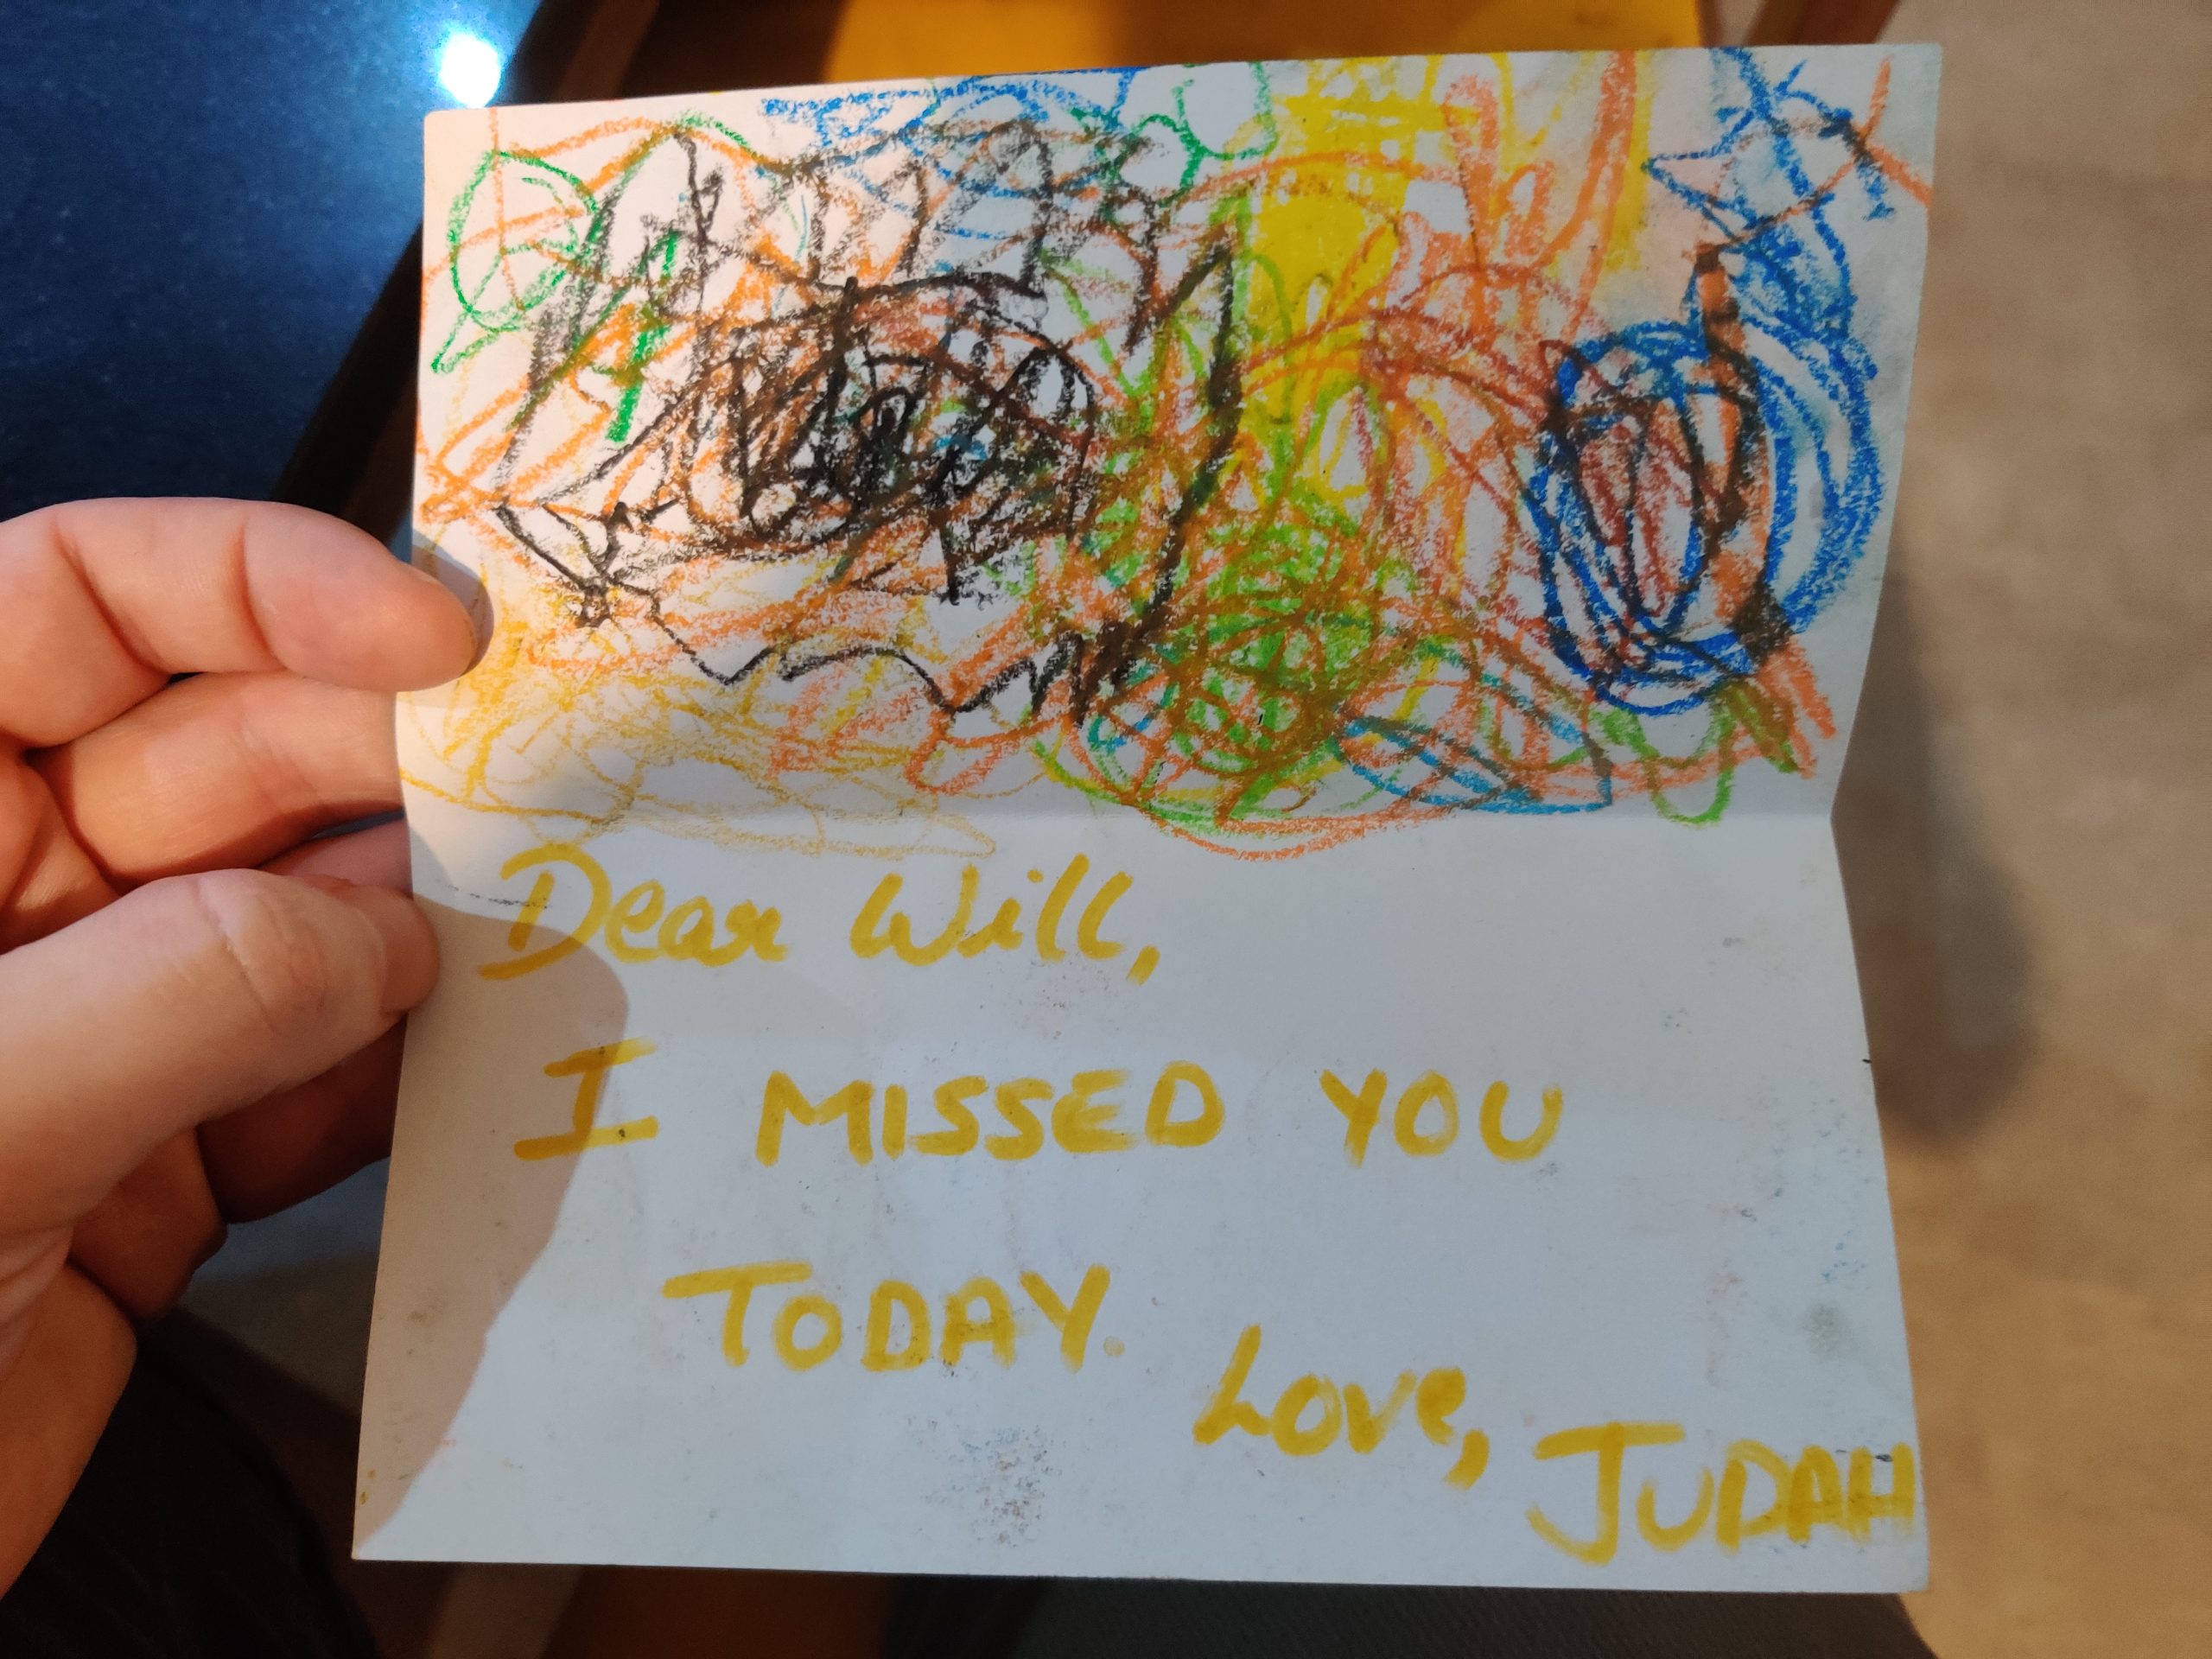 Dear Will,
I MISSED YOU
TODAY.
Love,
JUDAH